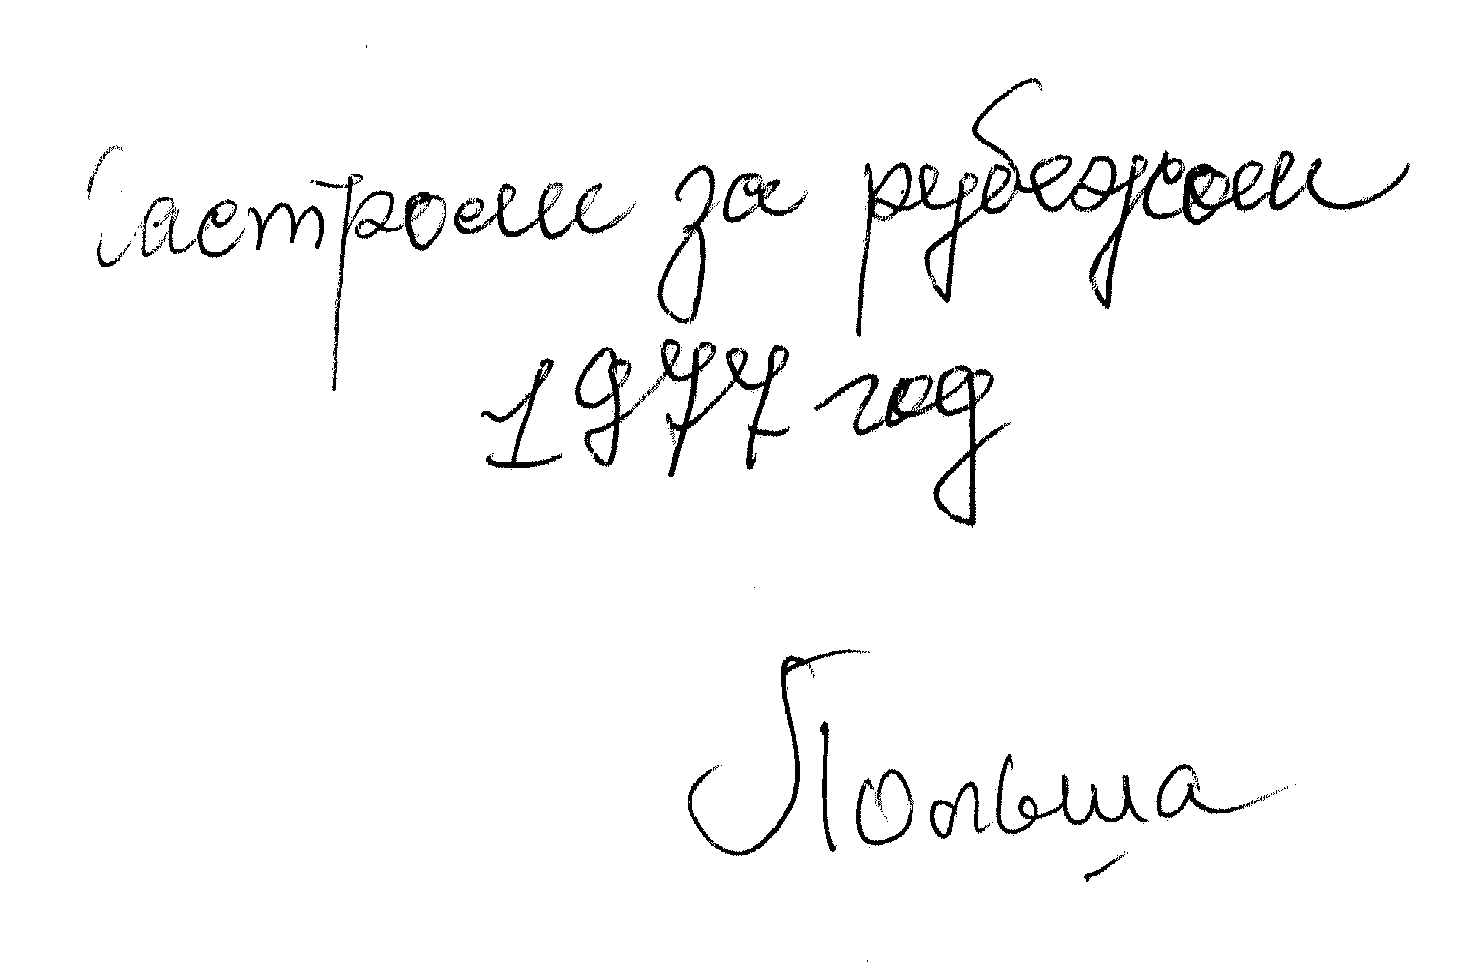 Гастроли за рубежом
1977 год
Польша